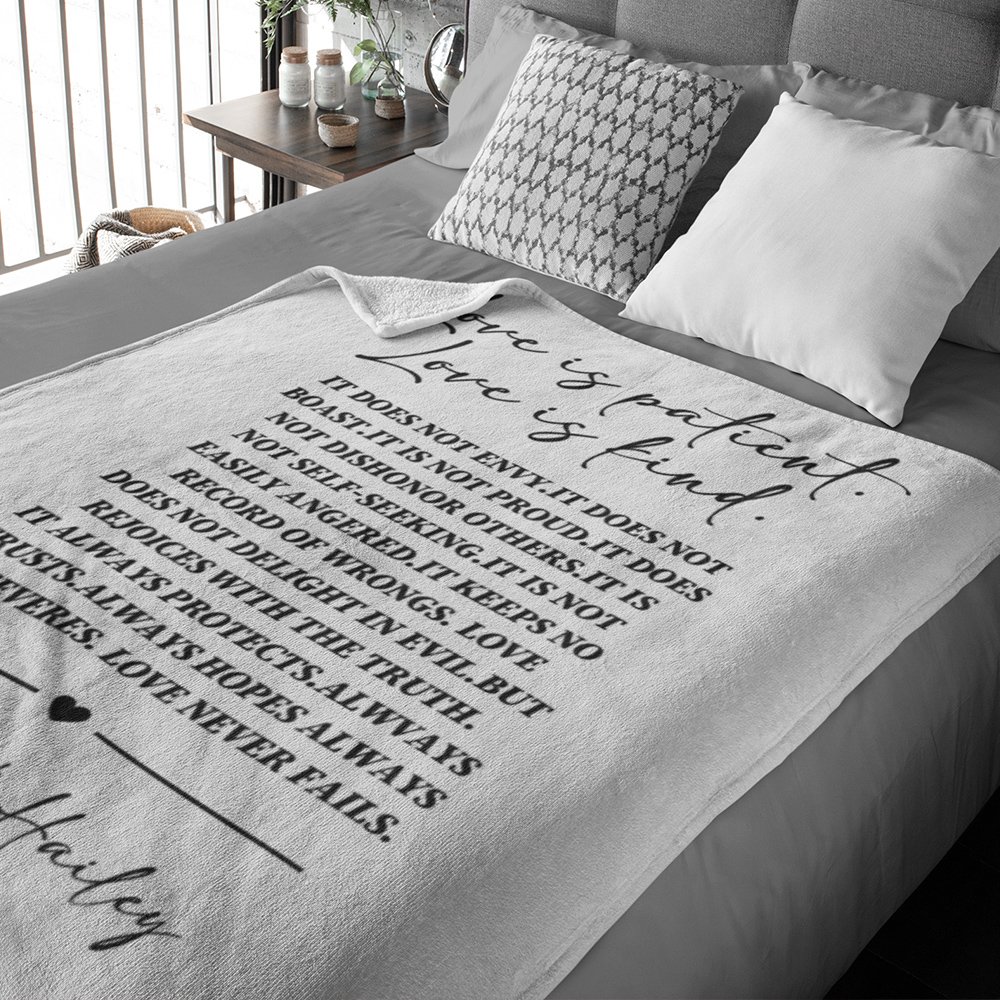 Love is patient.
Love is kind.
IT DOES NOT ENVY.IT DOES NOT
BOAST.IT IS NOT PROUD.IT DOES
NOT DISHONOR OTHERS.IT IS
NOT SELF-SEEKING.IT IS NOT
EASILY ANGERED.IT KEEPS NO
RECORD OF WRONGS. LOVE
DOES NOT DELIGHT IN EVIL. BUT
REJOICES WITH THE TRUTH.
IT ALWAYS PROTECTS.ALWWAYS
RUSTS.ALWAYS HOPES ALWAYS
EVERES. LOVE NEVER FAILS.
Hailey